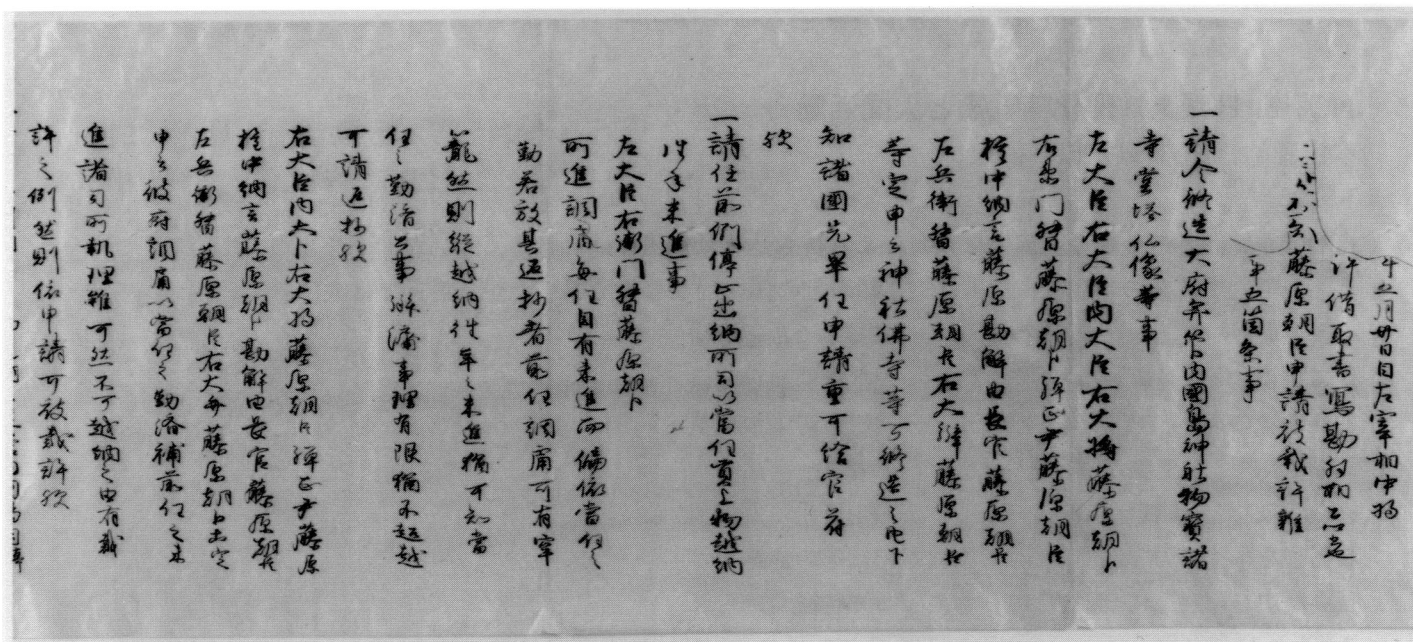 年五月廿日自左宰相中将
許借取書写勘
藤原朝臣申請被裁許雑
事五箇条事
一請令修造大府并管内国島神社物宝諸
寺堂塔仏像等事
左大臣右大臣内大臣右大将藤原朝臣
右衛門督藤原朝臣弾正尹藤原朝臣
権中納言藤原勘解由長官藤原朝臣
左兵衛督藤原朝臣右大弁藤原朝臣
等定申云神社仏寺等可修造之由下
知諸国先畢任申請重可給官符
歟
一請任前例停止出納所司以当任貢上物越納
往年未進事
左大臣右衛門督藤原朝臣
所進調庸毎任自有未進而偏依当任之
勤若放其返抄者前任調庸可有牢
籠然則縦越納往年之未進猶可知当
任之勤済公事弁済事理有限猶不越
可請返抄歟
右大臣内大臣右大将藤原朝臣弾正尹藤原
権中納言藤原朝臣勘解由長官藤原朝臣
左兵衛督藤原朝臣右大弁藤原朝臣等定
申云彼府調庸以当任之勤済補前任之未
進諸司所執理雖可然不可越納之由有裁
許之例然則依申請可被裁許歟